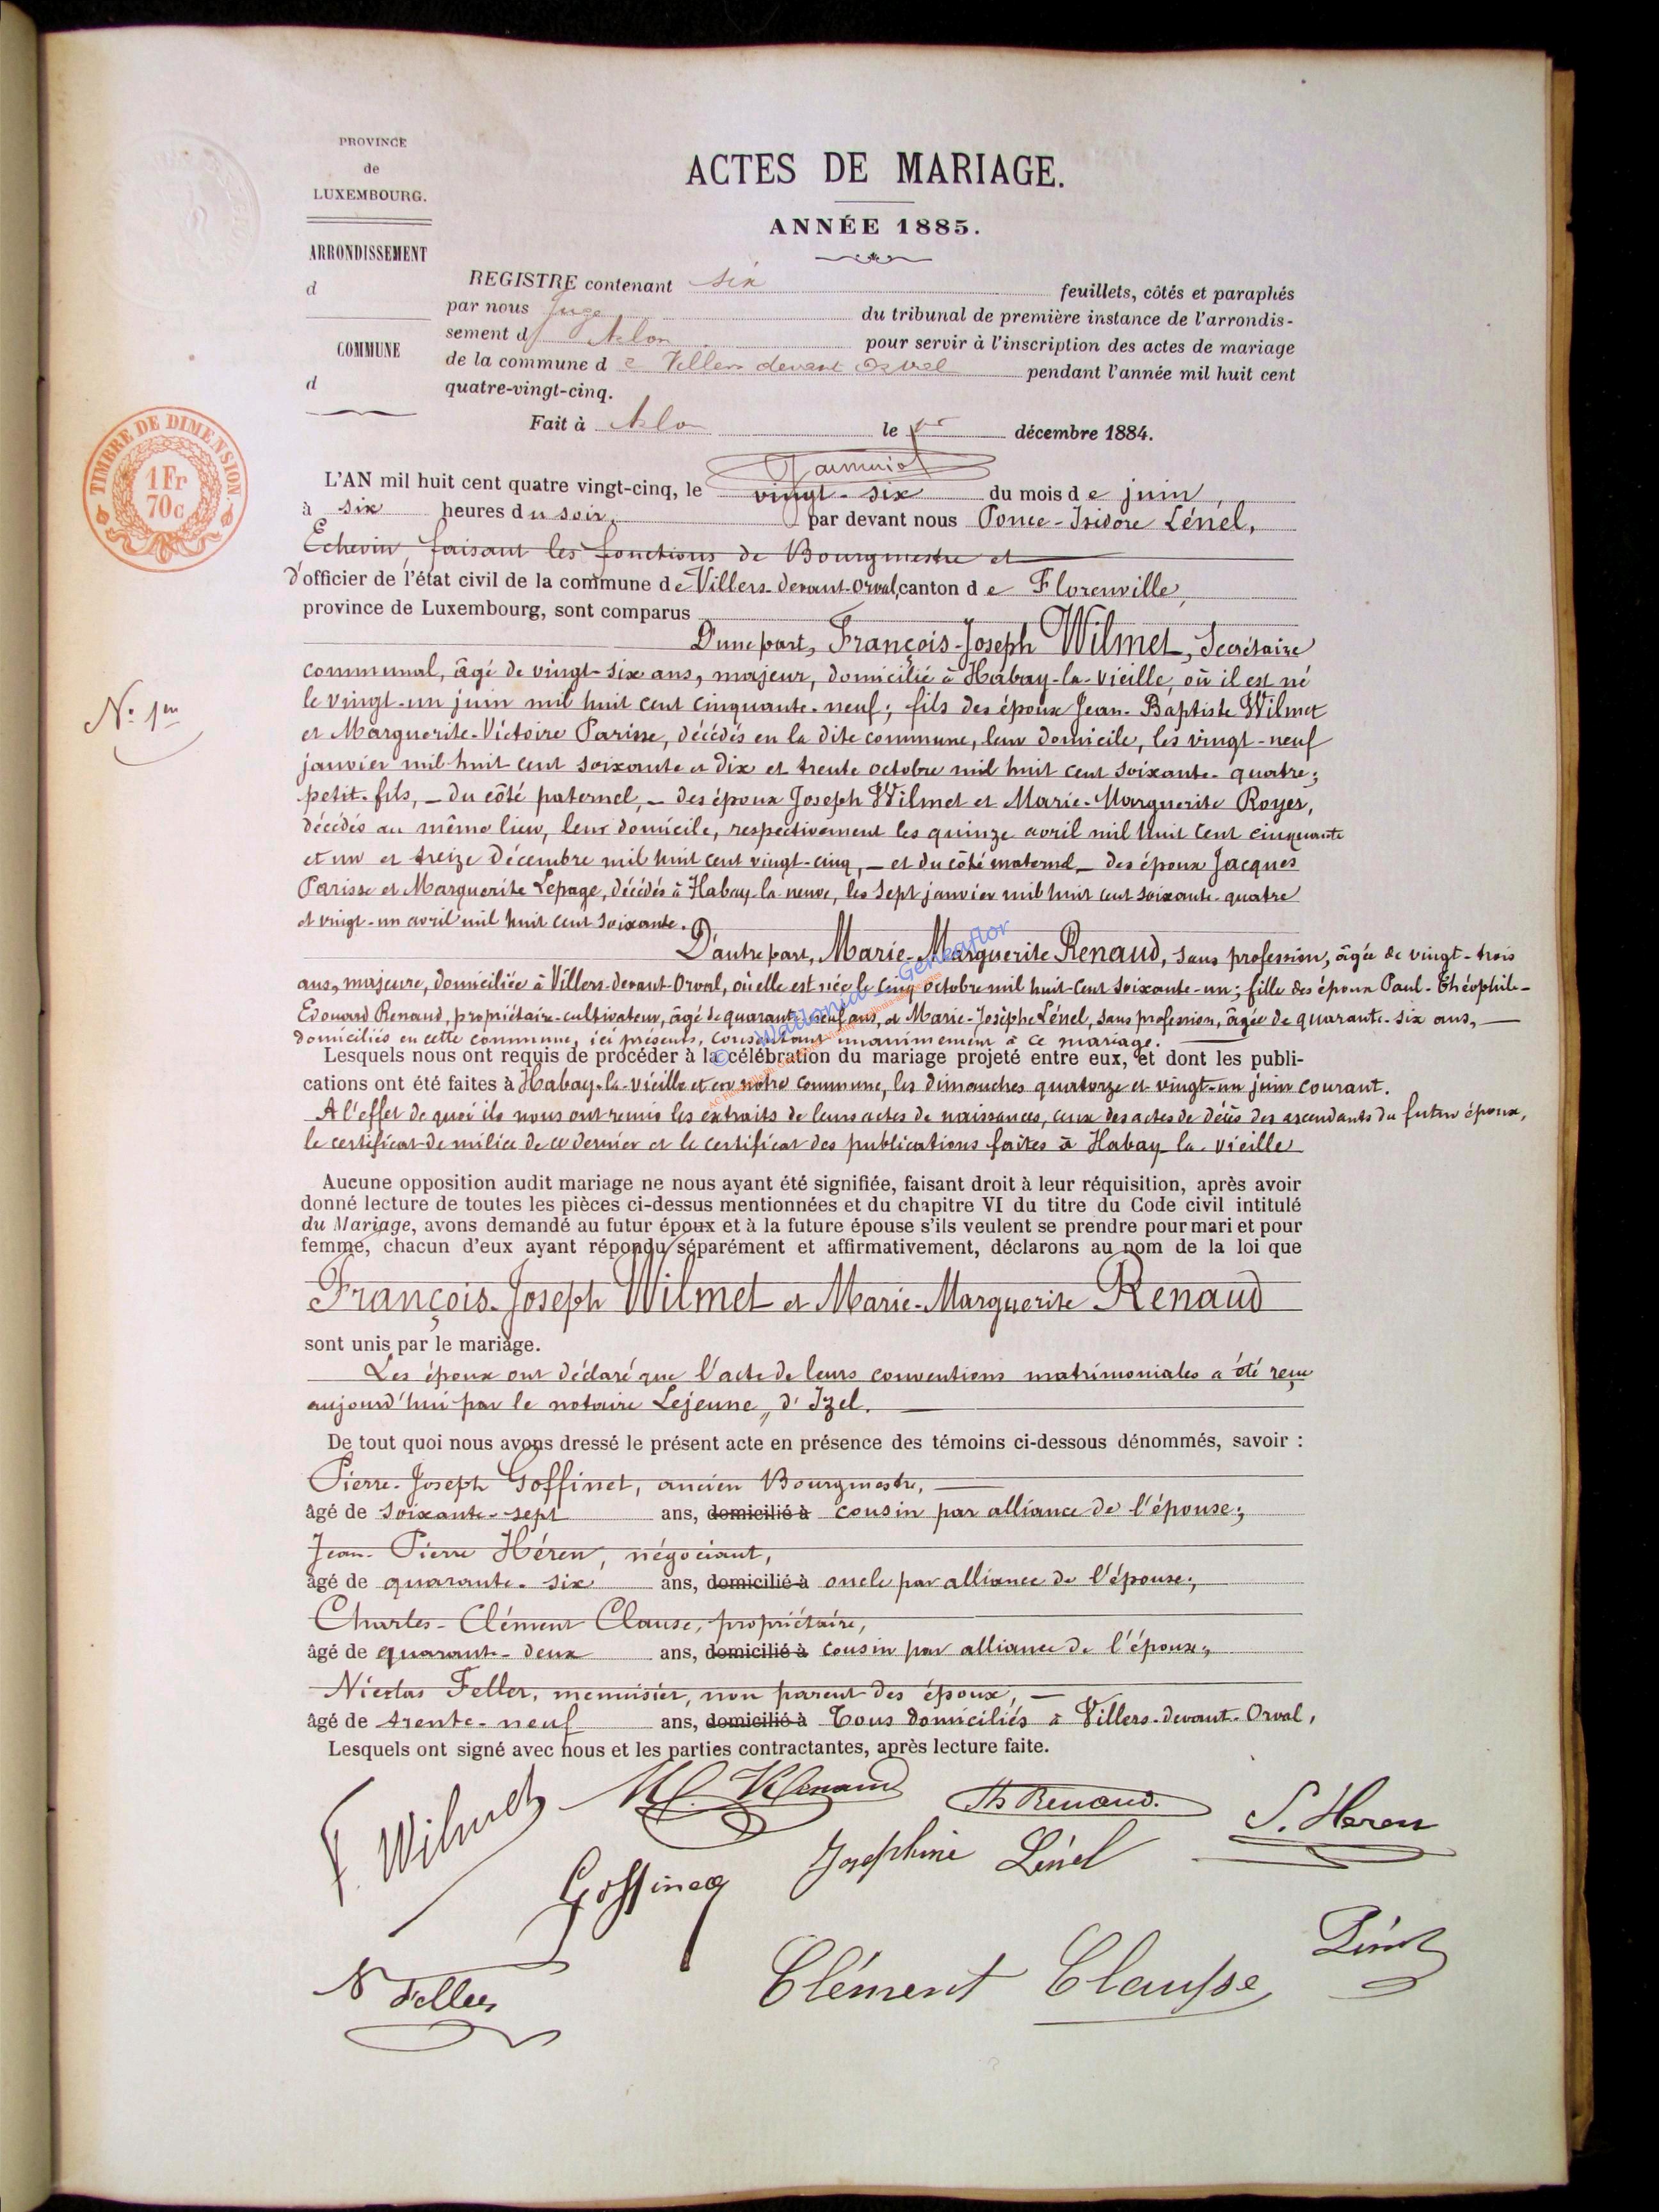 PROVINCE
de
LUXEMBOURG.
ARRONDISSEMENT
d
COMMUNE
d
ACTES DE MARIAGE.
ANNÉE 1885.
REGISTRE contenant six feuillets, côtés et paraphés
par nous Juge du tribunal de première instance de l'arrondis-
sement d' Arlon pour servir à l'inscription des actes de mariage
de la commune de Villers devant Orval pendant l'année mil huit cent
quatre-vingt-cinq.
Fait à Arlon le décembre 1884.
TIMBRE DE DIMENSION.
1 Fr
70c
L'AN mil huit cent quatre vingt-cinq, le vingt-six du mois de juin,
à six heures du soir, par devant nous Ponce-Isidore Lénel,
Echevin, faisant les fonctions de Bourgmestre et
d'officier de l'état civil de la commune de Villers-devant-Orval, canton de Florenville,
province de Luxembourg, sont comparus
D'une part, François-Joseph Wilmet, Secrétaire
communal, âgé de vingt-six ans, majeur, domicilié à Habay-la-vieille, où il est né
N° 1er
le vingt-un juin mil huit cent cinquante-neuf; fils des époux Jean-Baptiste Wilmet
et Marguerite-Victoire Parisse, décédés en la dite commune, leur domicile, les vingt-neuf
janvier mil huit cent soixante et dix et trente octobre mil huit cent soixante-quatre;
petit-fils, - du côté paternel, - des époux Joseph Wilmet et Marie-Marguerite Royer,
décédés au même lieu, leur domicile, respectivement les quinze avril mil huit cent cinquante
et un et treize Décembre mil huit cent vingt-cinq, - et du côté maternel - des époux Jacques
Parisse et Marguerite Lepage, décédés à Habay-la-neuve, les sept janvier mil huit cent soixante-quatre
et vingt-un avril mil huit cent soixante.
D'autre part, Marie-Marguerite Renaud, sans profession, âgée de vingt-trois
ans, majeure, domiciliée à Villers-devant-Orval, où elle est née le cinq octobre mil huit-cent soixante-un; fille des époux Paul-Théophile-
Edouard Renaud, propriétaire-cultivateur, âgé de quarante neuf ans, et Marie-Josèphe Lénel, sans profession, âgée de quarante-six ans,
domiciliés en cette commune, ici présents, consentant unanimement à ce mariage.
Lesquels nous ont requis de procéder à la célébration du mariage projeté entre eux, et dont les publi-
cations ont été faites à Habay-la-vieille et en notre commune, les dimanches quatorze et vingt-un juin courant.
A l'effet de quoi ils nous ont remis les extraits de leurs actes de naissances, ceux des actes de décès des ascendants du futur époux,
le certificat de milice de ce dernier et le certificat des publications faites à Habay-la-vieille
© Wallonia - Geneaflor
Aucune opposition audit mariage ne nous ayant été signifiée, faisant droit à leur réquisition, après avoir
donné lecture de toutes les pièces ci-dessus mentionnées et du chapitre VI du titre du Code civil intitulé
du Mariage, avons demandé au futur époux et à la future épouse s'ils veulent se prendre pour mari et pour
femme, chacun d'eux ayant répondu séparément et affirmativement, déclarons au nom de la loi que
François-Joseph Wilmet et Marie-Marguerite Renaud
sont unis par le mariage.
Les époux ont déclaré que l'acte de leurs conventions matrimoniales a été reçu
aujourd'hui par le notaire Lejeune, d'Izel.
De tout quoi nous avons dressé le présent acte en présence des témoins ci-dessous dénommés, savoir :
Pierre-Joseph Goffinet, ancien Bourgmestre,
âgé de soixante-sept ans, domicilié à cousin par alliance de l'épouse;
Jean-Pierre Héren, négociant,
âgé de quarante-six ans, domicilié à oncle par alliance de l'épouse;
Charles-Clément Clause, propriétaire,
âgé de quarante-deux ans, domicilié à cousin par alliance de l'épouse;
Nicolas Feller, menuisier, non parent des époux,
âgé de trente-neuf ans, domicilié à Tous domiciliés à Villers-devant-Orval,
Lesquels ont signé avec nous et les parties contractantes, après lecture faite.
F. Wilmet M. Renaud Th Renaud. Heren
Goffinet Joséphine Lénel
N Feller Clément Clausse Lénel